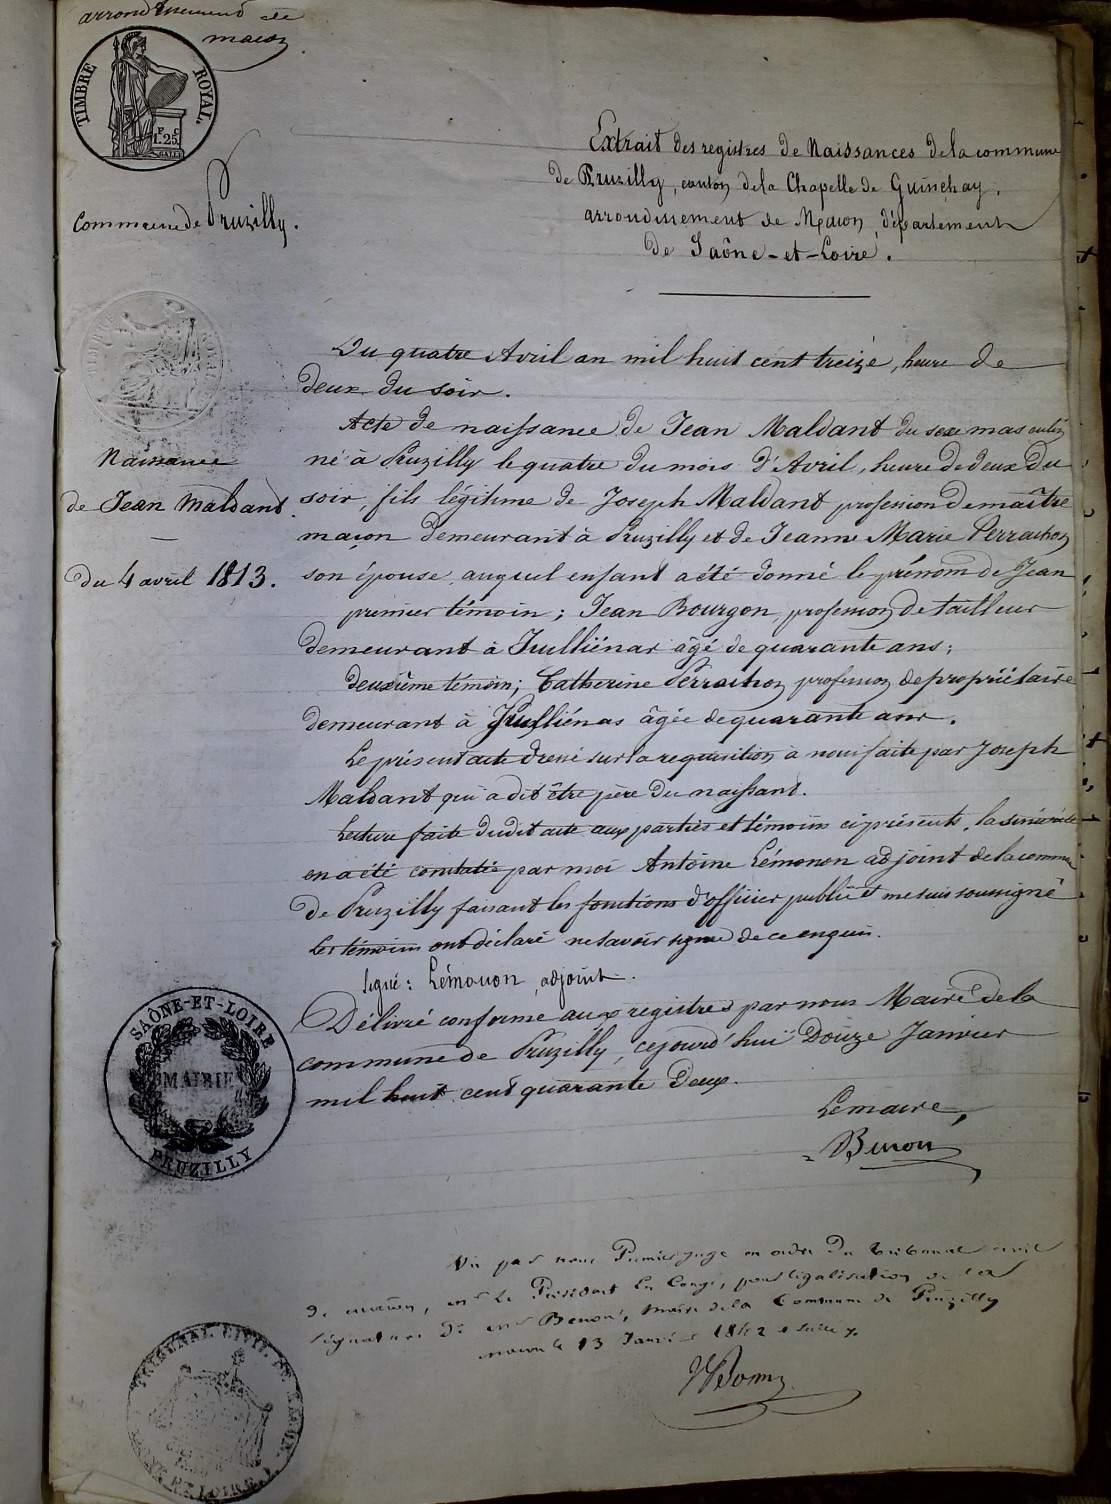 arrondissement de
macon
TIMBRE ROYAL.
F. C.
1.25.
Extrait des registres de Naissances de la commune
de Pruzilly, canton de la Chapelle de Guinchay,
arrondissement de Macon, département
de Saône-et-Loire.
Commune de Pruzilly.
Du quatre Avril an mil huit cent treize, heure de
deux du soir.
Acte de naissance de Jean Maldant du sexe masculin
né à Pruzilly le quatre du mois d'Avril, heure de deux du
soir, fils légitime de Joseph Maldant profession de maître
maçon demeurant à Pruzilly et de Jeanne Marie Perrachon
son épouse auquel enfant a été donné le prénom de Jean
premier témoin; Jean Bourgon, profession de tailleur
demeurant à Jullienas âgé de quarante ans;
deuxième témoin; Catherine Perrachon profession de propriétaire
demeurant à Julliénas âgée de quarante ans.
Le présent acte dressé sur la requisition à nous faite par Joseph
Maldant qui a dit être père du naissant.
Lecture faite dudit acte aux parties et témoins ci présents, la sincérité
en a été constatée par moi Antoine Lémonon adjoint de la commune
de Pruzilly faisant les fonctions d'officier public et me suis soussigné
Les témoins ont déclaré ne savoir signer de ce enquis.
signé: Lémonon, adjoint.
Délivré conforme aux registres par nous Maire de la
commune de Pruzilly, cejourd'hui Douze Janvier
mil huit cent quarante Deux.
Le maire,
Benon
Naissance
de Jean Maldant
du 4 avril 1813.
SAÔNE-ET-LOIRE
MAIRIE
PRUZILLY
Vu par nous Premier juge en ordre Du tribunal civil
de macon, en le Président En Congé, pour légalisation de la
signature de mr Benon, Maire de la Commune de Pruzilly
macon le 13 Janvier 1842
TRIBUNAL CIVIL DE MACON.
SAONE ET LOIRE